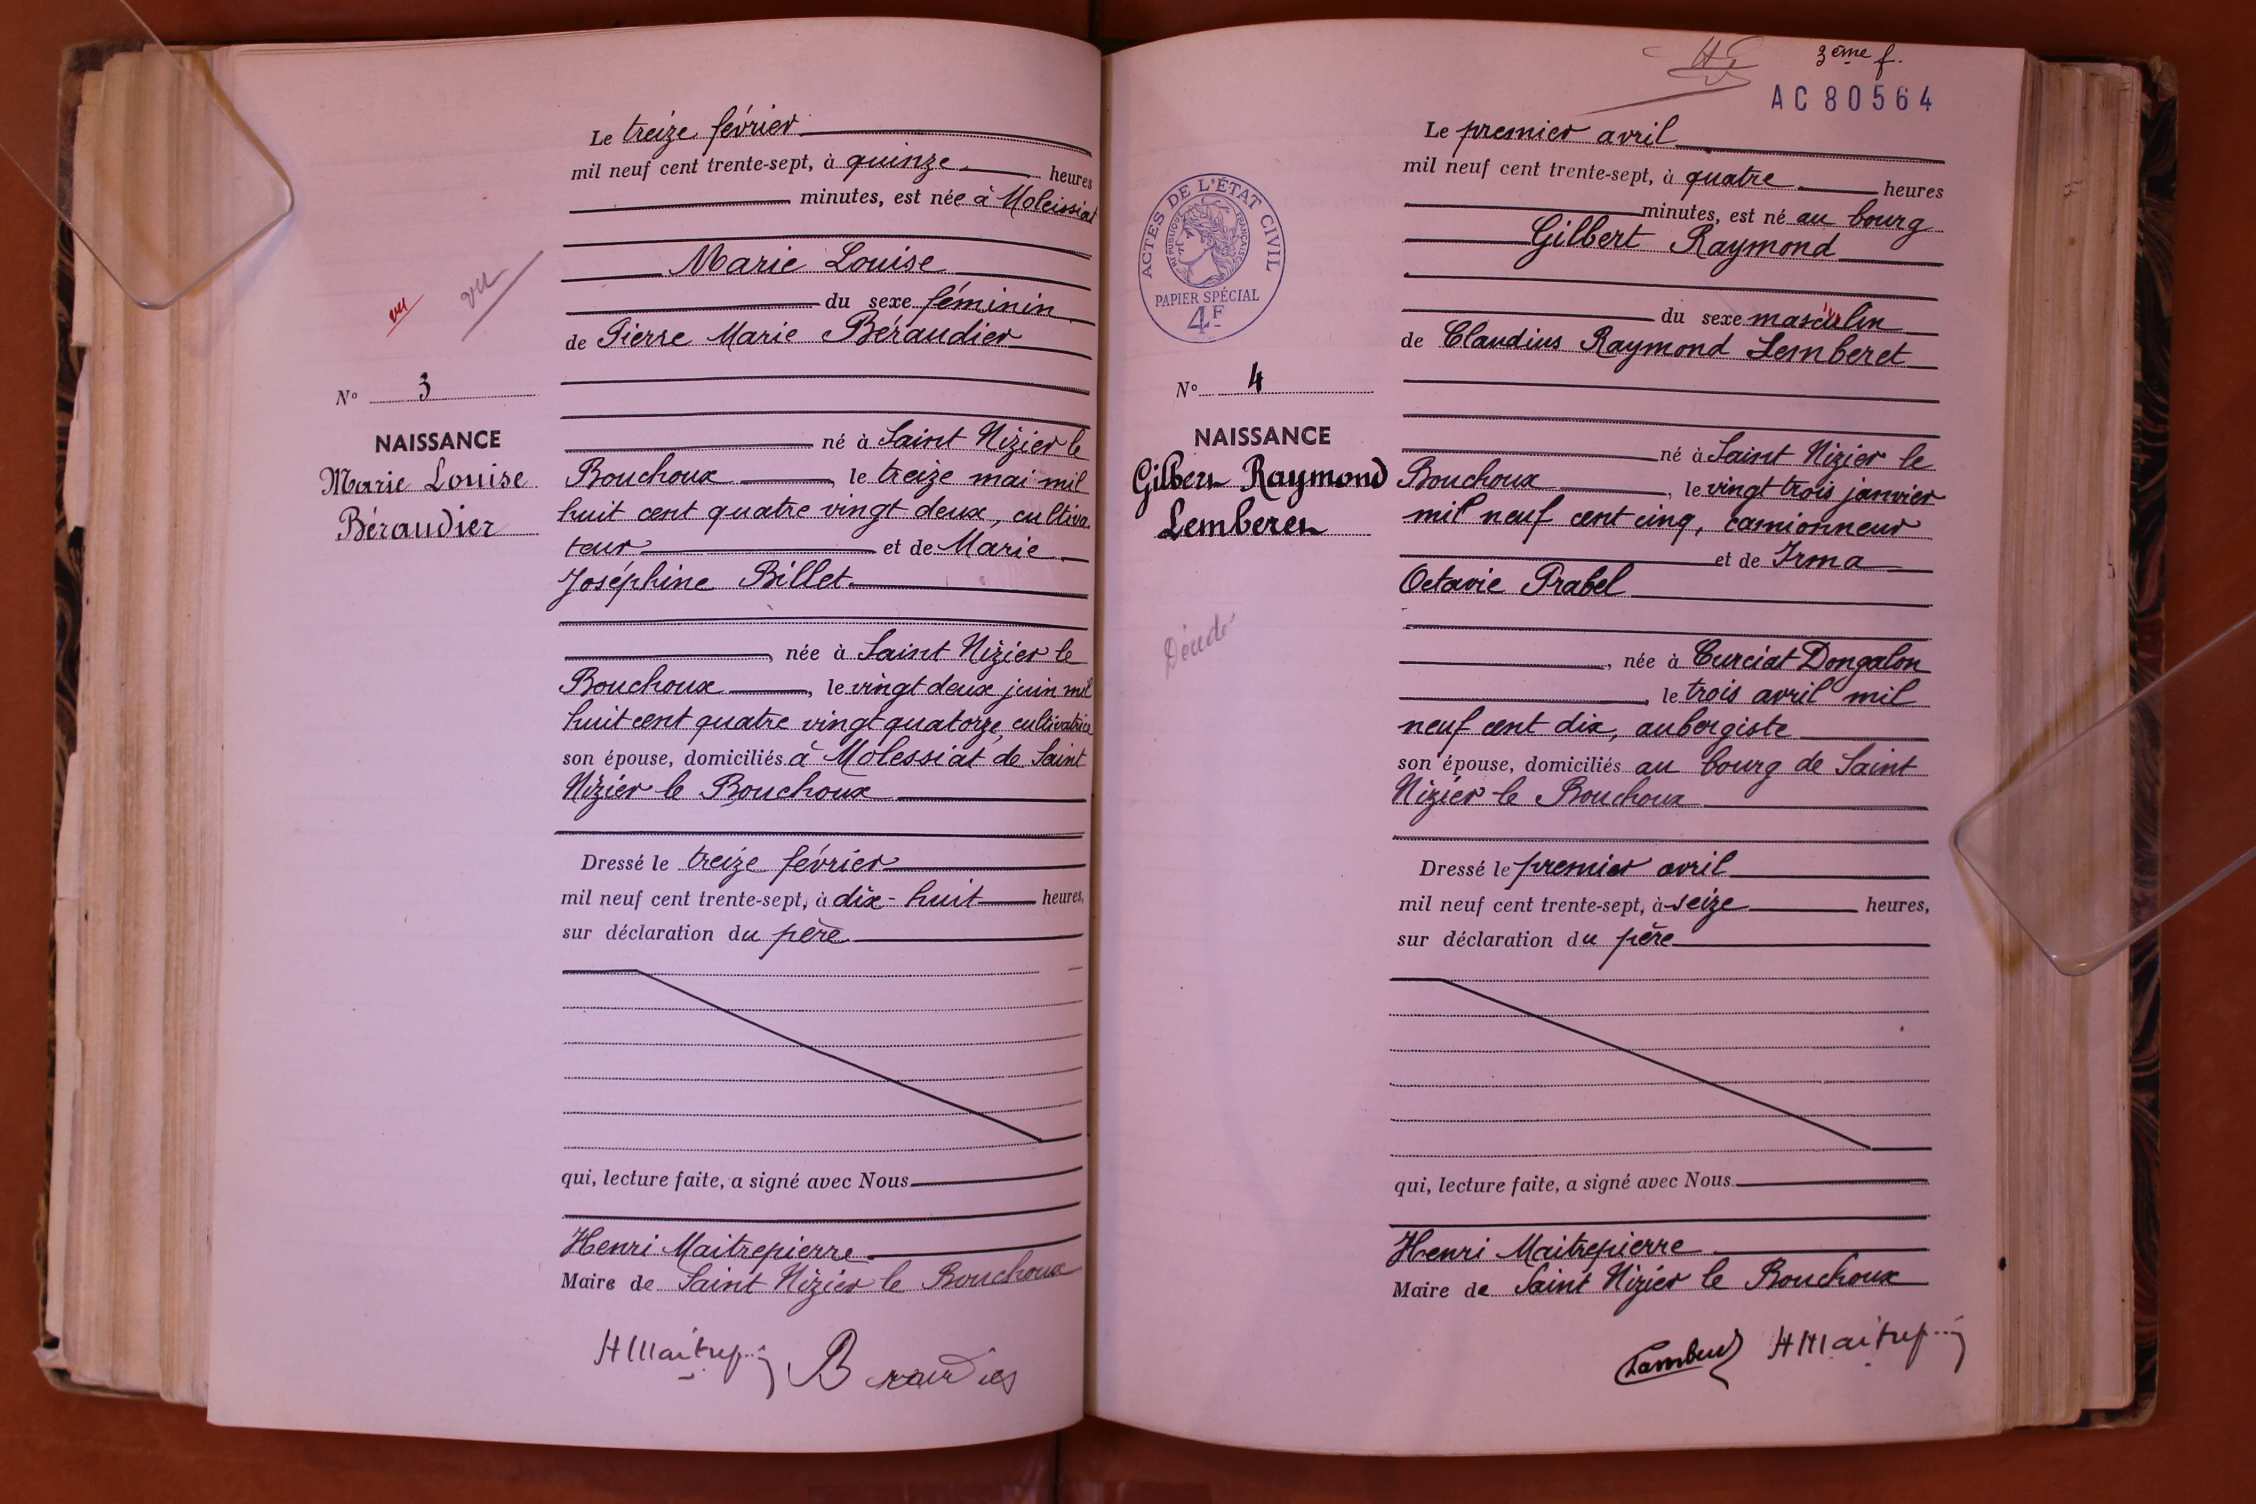 vu
vu
N° 3
NAISSANCE
Marie Louise
Béraudier
Le treize février
mil neuf cent trente-sept, à quinze heures
minutes, est née à Moleissiat
Marie Louise
du sexe féminin
de Pierre Marie Béraudier
né à Saint Nizier le
Bouchoux, le treize mai mil
huit cent quatre vingt deux, cultiva
teur et de Marie
Joséphine Billet
, née à Saint Nizier le
Bouchoux, le vingt deux juin mil
huit cent quatre vingt quatorze, cultivatrice
son épouse, domiciliés à Molessiat de Saint
Nizier le Bouchoux
Dressé le treize février
mil neuf cent trente-sept, à dix-huit heures,
sur déclaration du père
qui, lecture faite, a signé avec Nous
Henri Maitrepierre
Maire de Saint Nizier le Bouchoux
3ème f.
AC 80564
ACTES DE L'ÉTAT CIVIL
RÉPUBLIQUE FRANÇAISE
PAPIER SPÉCIAL
4F
N° 4
NAISSANCE
Gilbert Raymond
Lemberet
Le premier avril
mil neuf cent trente-sept, à quatre heures
minutes, est né au bourg
Gilbert Raymond
du sexe masculin
de Claudius Raymond Lemberet
né à Saint Nizier le
Bouchoux, le vingt trois janvier
mil neuf cent cinq, camionneur
et de Irma
Octavie Prabel
, née à Curciat Dongalon
, le trois avril mil
neuf cent dix, aubergiste
son épouse, domiciliés au bourg de Saint
Nizier le Bouchoux
Dressé le premier avril
mil neuf cent trente-sept, à seize heures,
sur déclaration du père
qui, lecture faite, a signé avec Nous
Henri Maitrepierre
Maire de Saint Nizier le Bouchoux